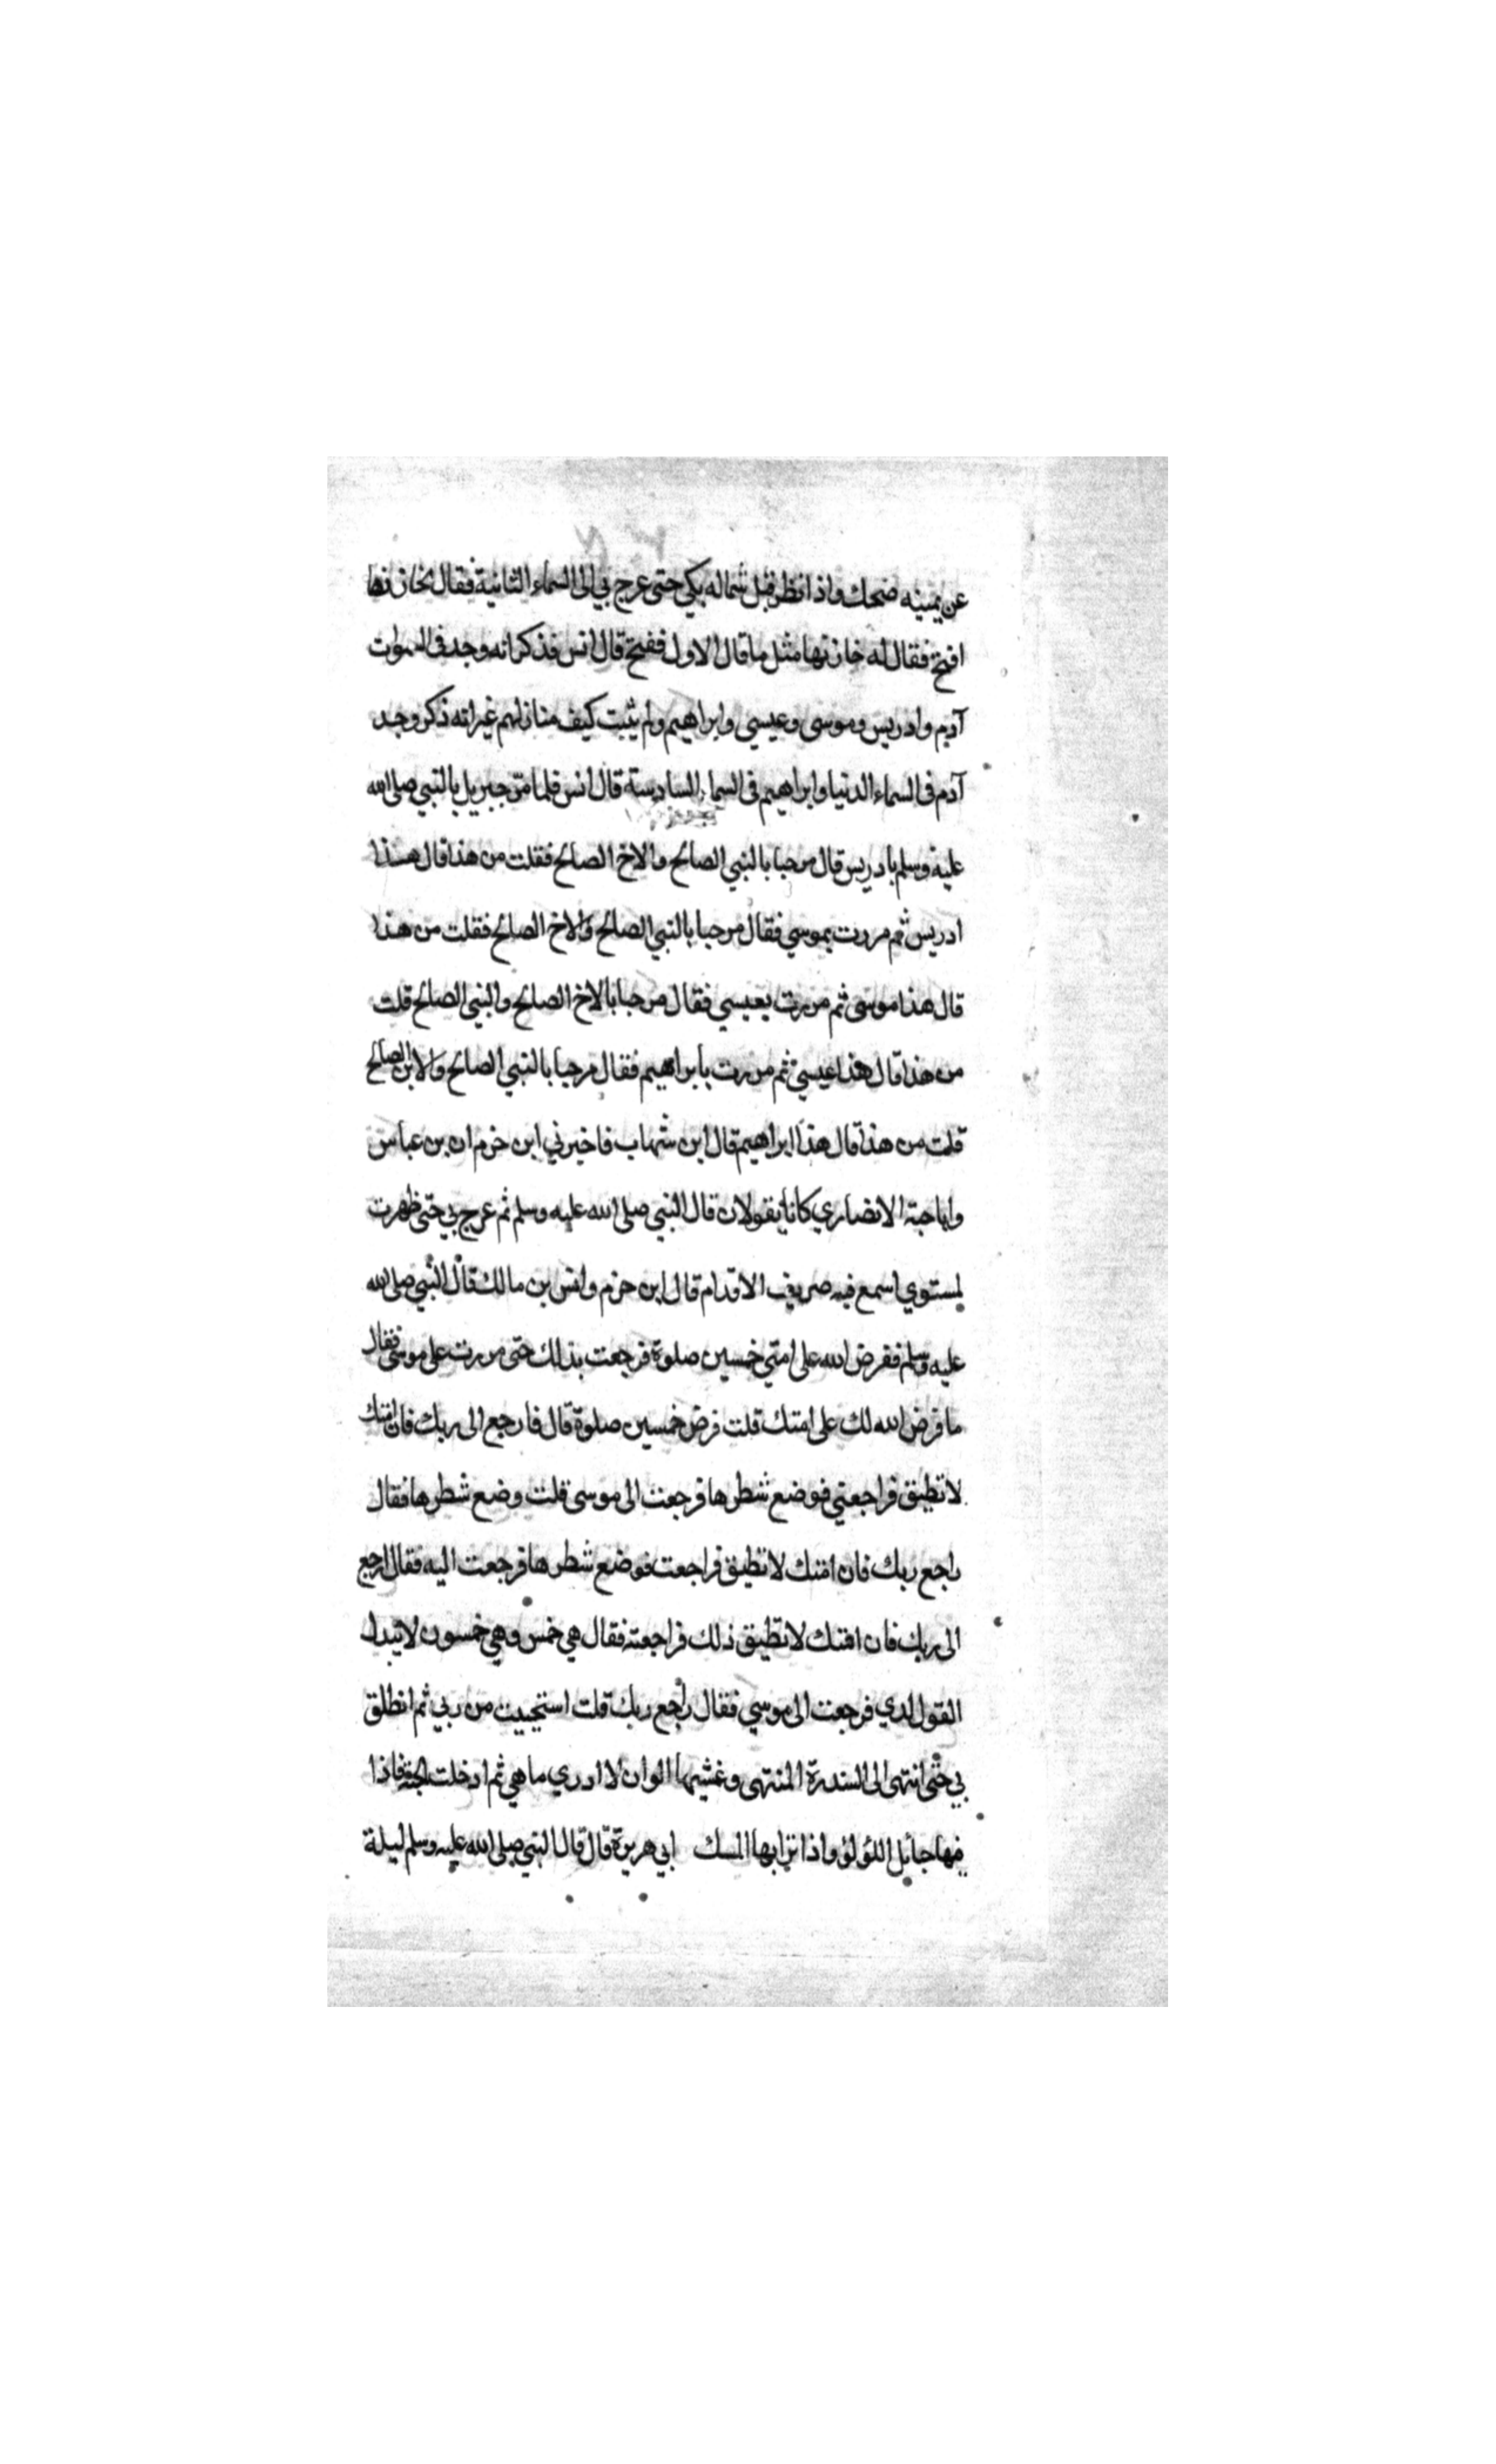 عن يمينه ضحك واذا نظر قبل شماله بكي حتى عرج بي الى السماء الثانية فقال لخازنها
افتح فقال له خازنها مثل ما قال الاول ففتح قال انس فذكر انه وجد في السموات
آدم وادريس وموسى وعيسي وابراهيم ولم يثبت كيف منازلهم غير انه ذكر وجد
آدم في السماء الدنيا وابراهيم في السماء السادسة قال انس فلما مرّ جبريل بالنبي صلى الله
عليه وسلم بادريس قال مرحبا بالنبي الصالح والاخ الصالح فقلت من هذا قال هذا
ادريس ثم مررت بموسي فقال مرحبا بالنبي الصالح والاخ الصالح فقلت من هذا
قال هذا موسى ثم مررت بعيسي فقال مرحبا بالاخ الصالح والنبي الصالح قلت
من هذا قال هذا عيسي ثم مررت بابراهيم فقال مرحبا بالنبي الصالح والابن الصالح
قلت من هذا قال هذا ابراهيم قال ابن شهاب فاخبرني ابن حزم ان بن عباس
وابا حبة الانصاري كانا يقولان قال النبي صلى الله عليه وسلم ثم عرج بي حتى ظهرت
لمستوي اسمع فيه صريف الاقدام قال ابن حزم وانس بن مالك قال النبي صلى الله
عليه وسلم ففرض الله على امتي خمسين صلوة فرجعت بذلك حتى مررت على موسى فقال
ما فرض الله لك على امتك قلت فرض خمسين صلوة قال فارجع الى ربك فان امتك
لا تطيق فراجعني فوضع شطرها فرجعت الى موسى قلت وضع شطرها فقال
راجع ربك فان امتك لا تطيق فراجعت فوضع شطرها فرجعت اليه فقال ارجع
الى ربك فان امتك لا تطيق ذلك فراجعته فقال هي خمس وهي خمسون لا يبدل
القول لدي فرجعت الى موسي فقال راجع ربك قلت استحييت من ربي ثم انطلق
بي حتى انتهى الى السدرة المنتهى وغشيها الوان لا ادري ما هي ثم ادخلت الجنة فاذا
فيها حبائل اللؤلؤ واذا ترابها المسك ابي هريرة قال قال النبي صلى الله عليه وسلم ليلة